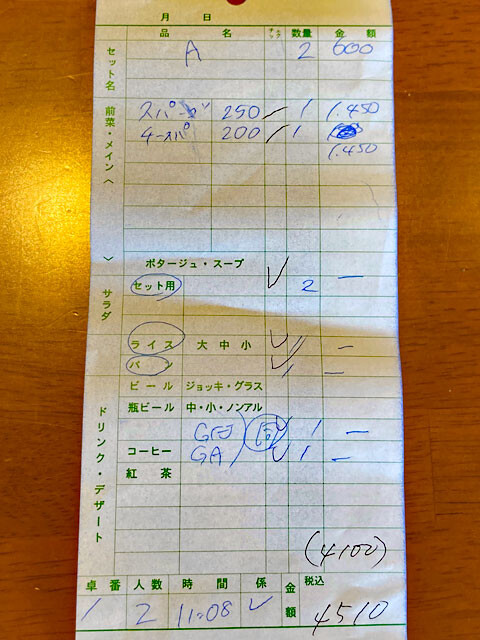 月 日
品 名 チェック 数量 金額
セット名
A 2 600
前菜・メイン
スパ 250 ✓ 1 1,450
チースパ 200 ✓ 1
1,450
ポタージュ・スープ
セット用 ✓ 2 ー
サラダ
ライス 大 中 小 ✓ ー
パン ✓ 1 ー
ビール ジョッキ・グラス
瓶ビール 中・小・ノンアル
ドリンク・デザート
1 ー
コーヒー GA ✓ 1 ー
紅茶
(4100)
卓番 人数 時間 係 金額 税込
1 2 11:08 ✓ 4510